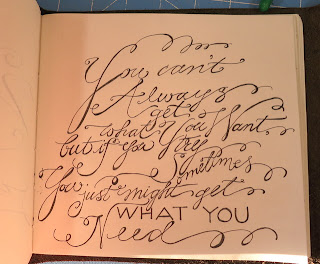 You can't
Always
get
what You Want
but if You try
Sometimes
You just might get
WHAT YOU
Need